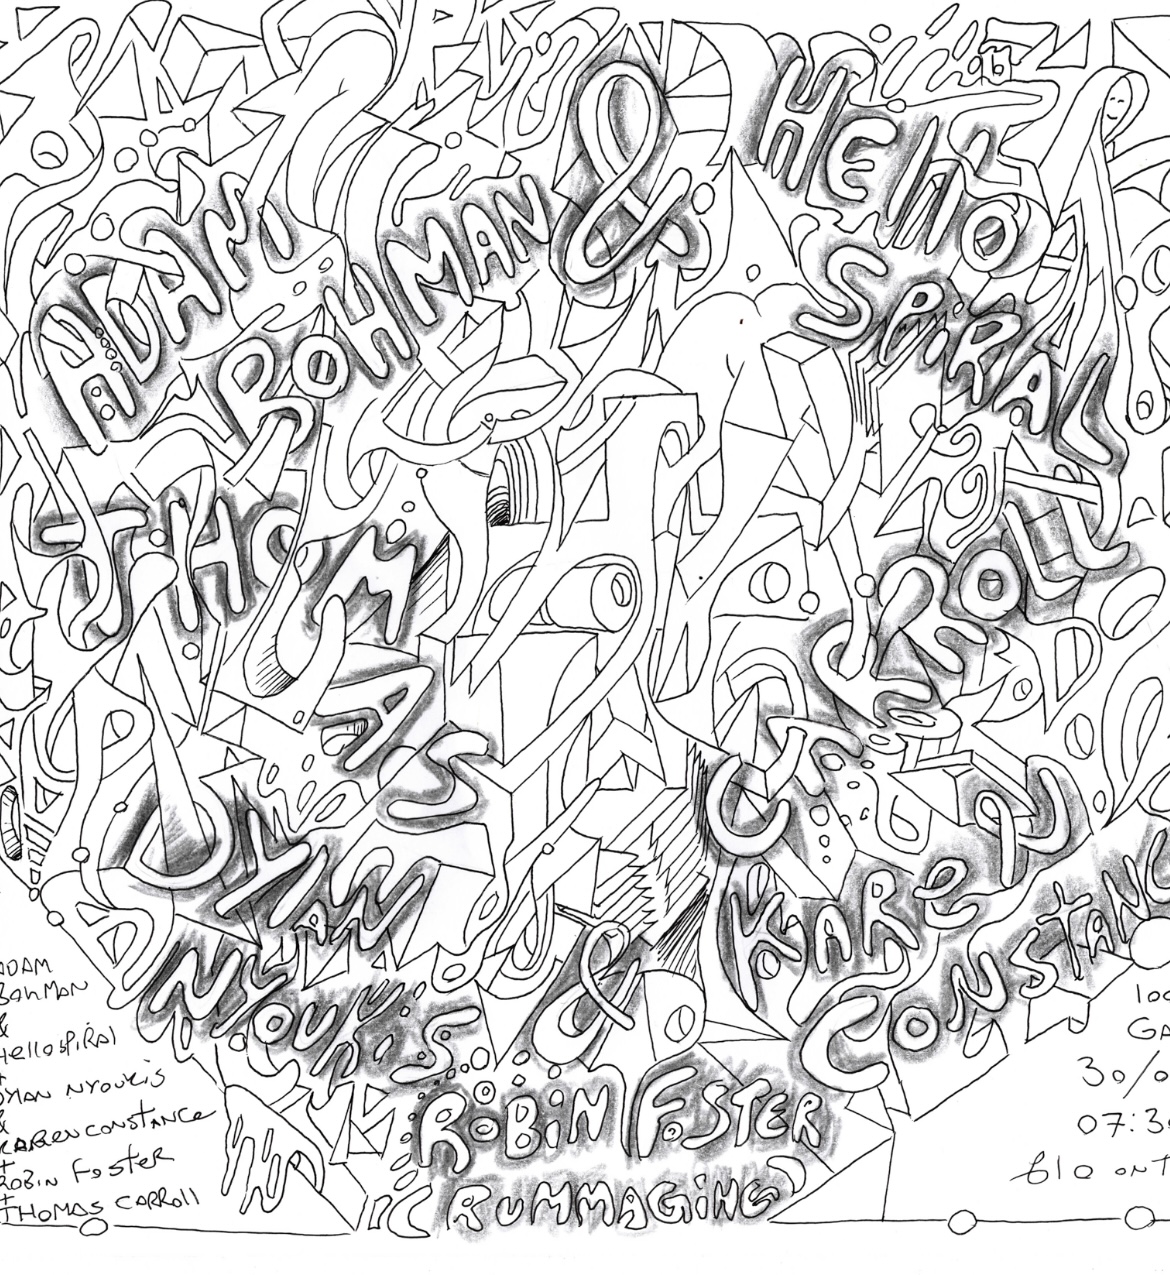 ADAM
BOHMAN
&
HEllO
SPiRAL
THOMAS
CARROLL
DYLAN
NYOUKiS
&
KAReN
CONSTANC
ROBiN FOSTER
RUMMAGiNG
ADAM
BOHMAN
&
HellOSPiRAl
+
DYLAN NYOUKiS
&
KARENCONSTANCe
+
ROBiN FosteR
+
THOMAS CARROll
100
GA
30/0
07:3
£10 ON T